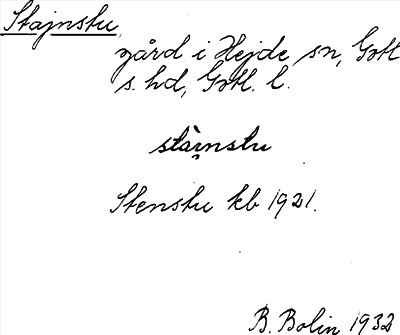 Stajnstu,
gård i Hejde sn, Gotl
s. hd, Gotl. l.
stàịnstu
Stenstu kb 1921.
B. Bolin 1932